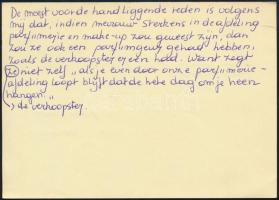 De meest voor de hand liggende reden is volgens
mij dat, indien mevrouw Sterkens in de afdeling
parfumerie en make-up zou geweest zijn, dan
zou ze ook een parfumgeur gehad hebben,
zoals de verkoopster er een had. Want zegt
ze niet zelf "als je even door onze parfumerie-
afdeling loopt blijft dat de hele dag om je heen
hangen."
↳ de verkoopster.